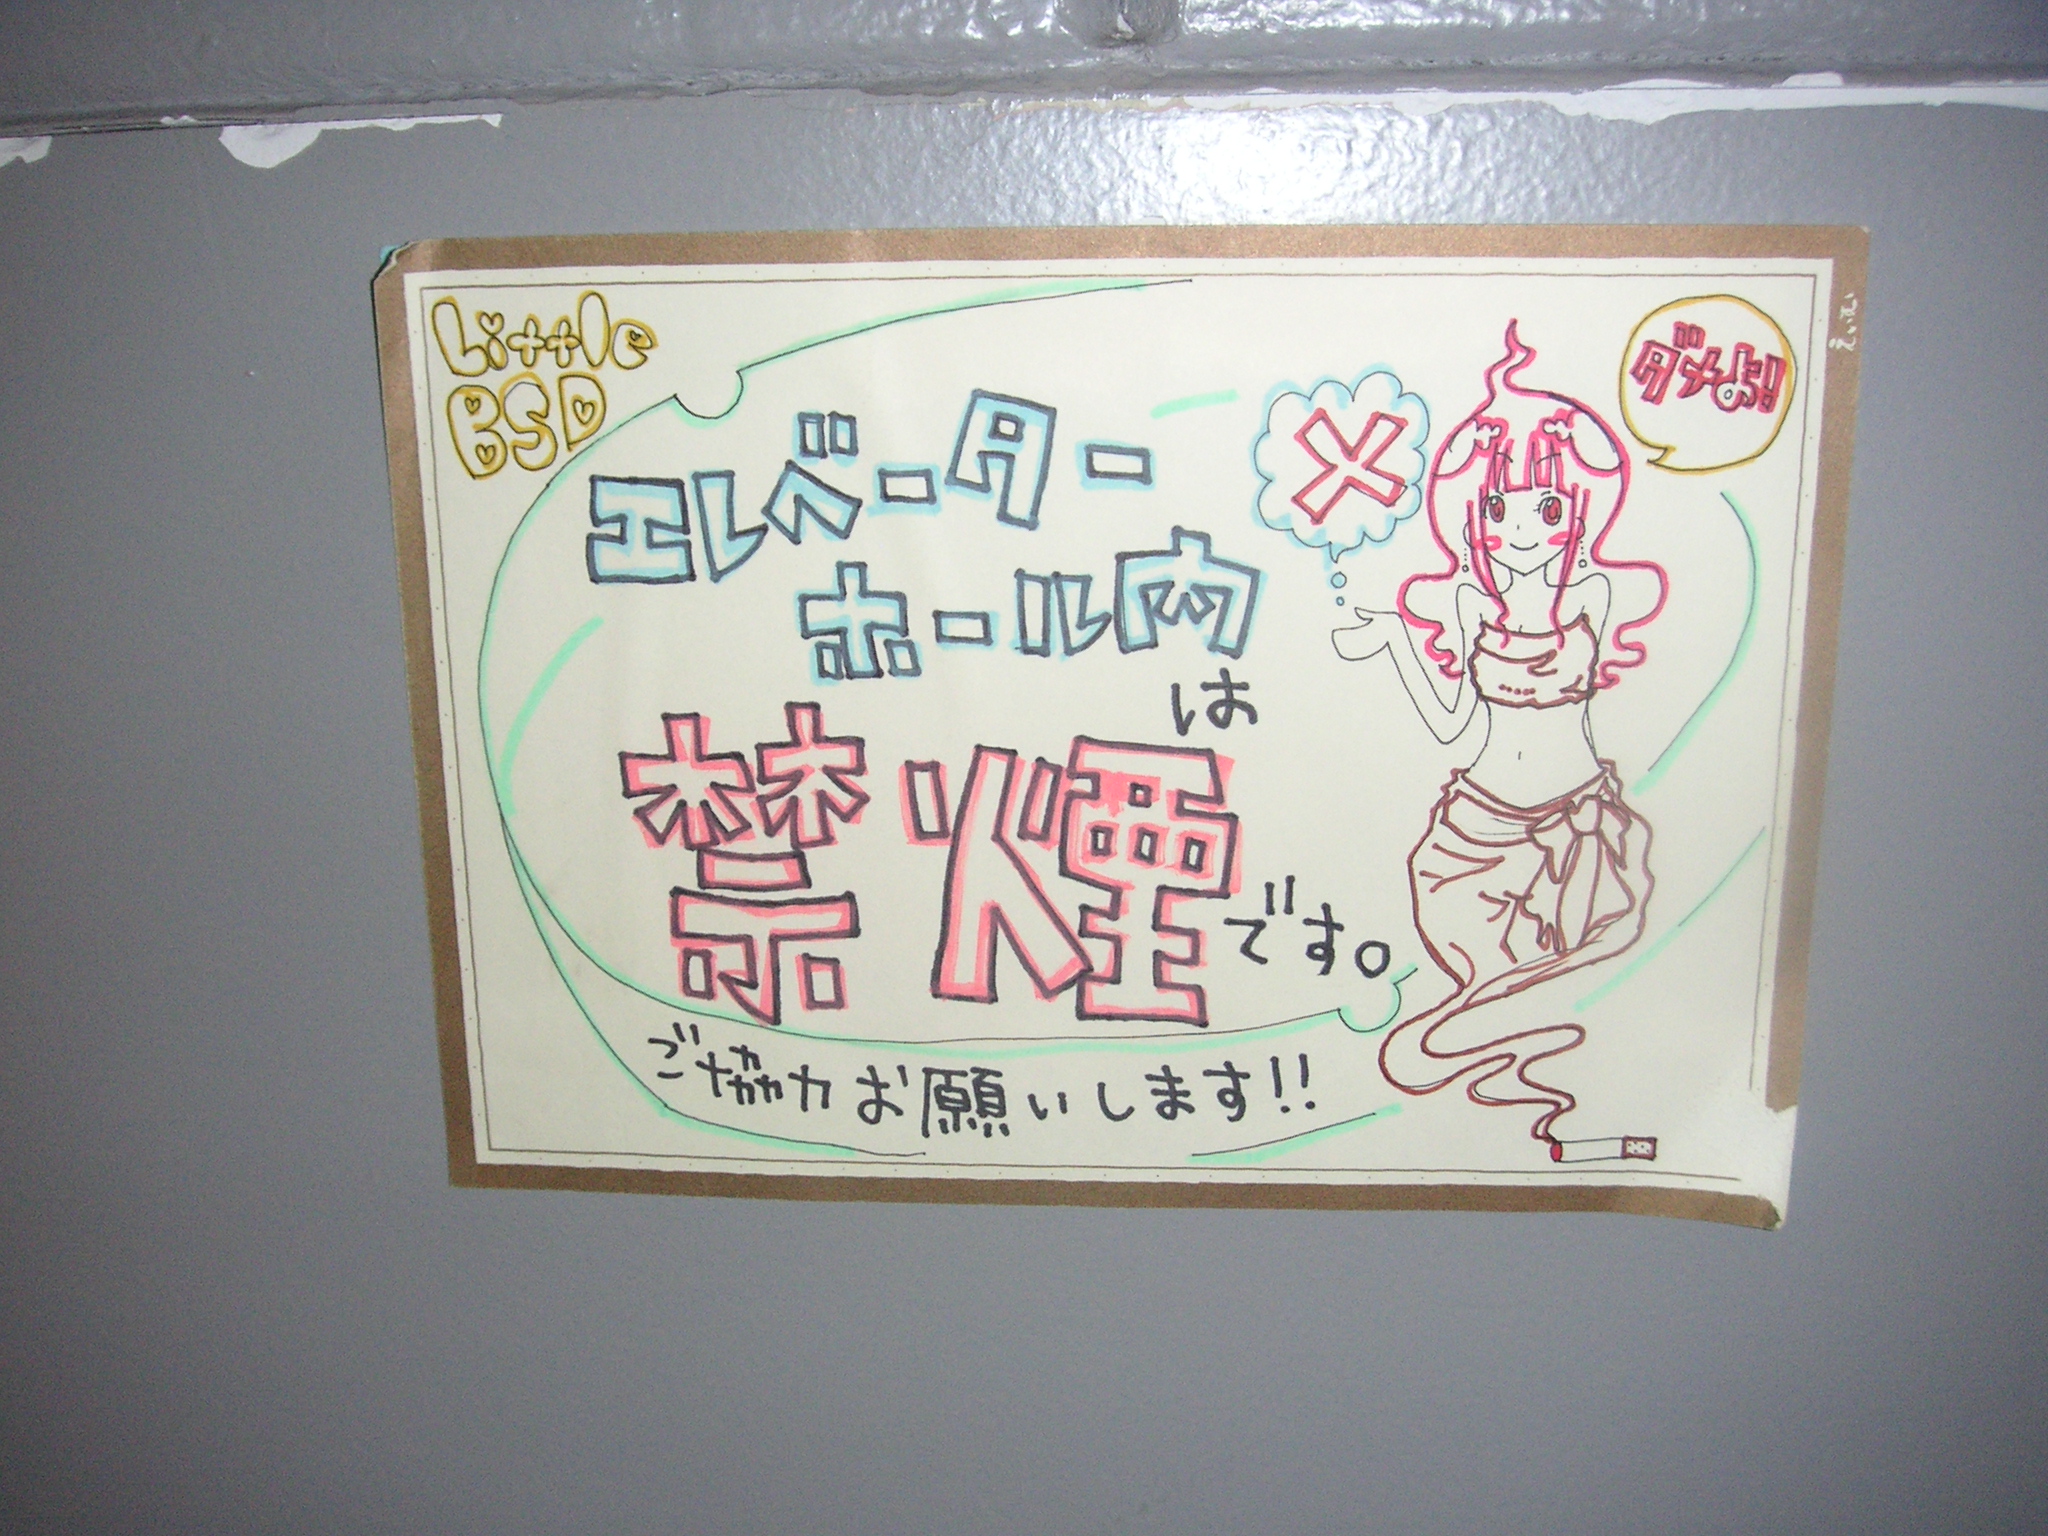 Little
BSD
エレベーター
ホール内
は
禁煙です。
ご協力お願いします!!
ダメよ!